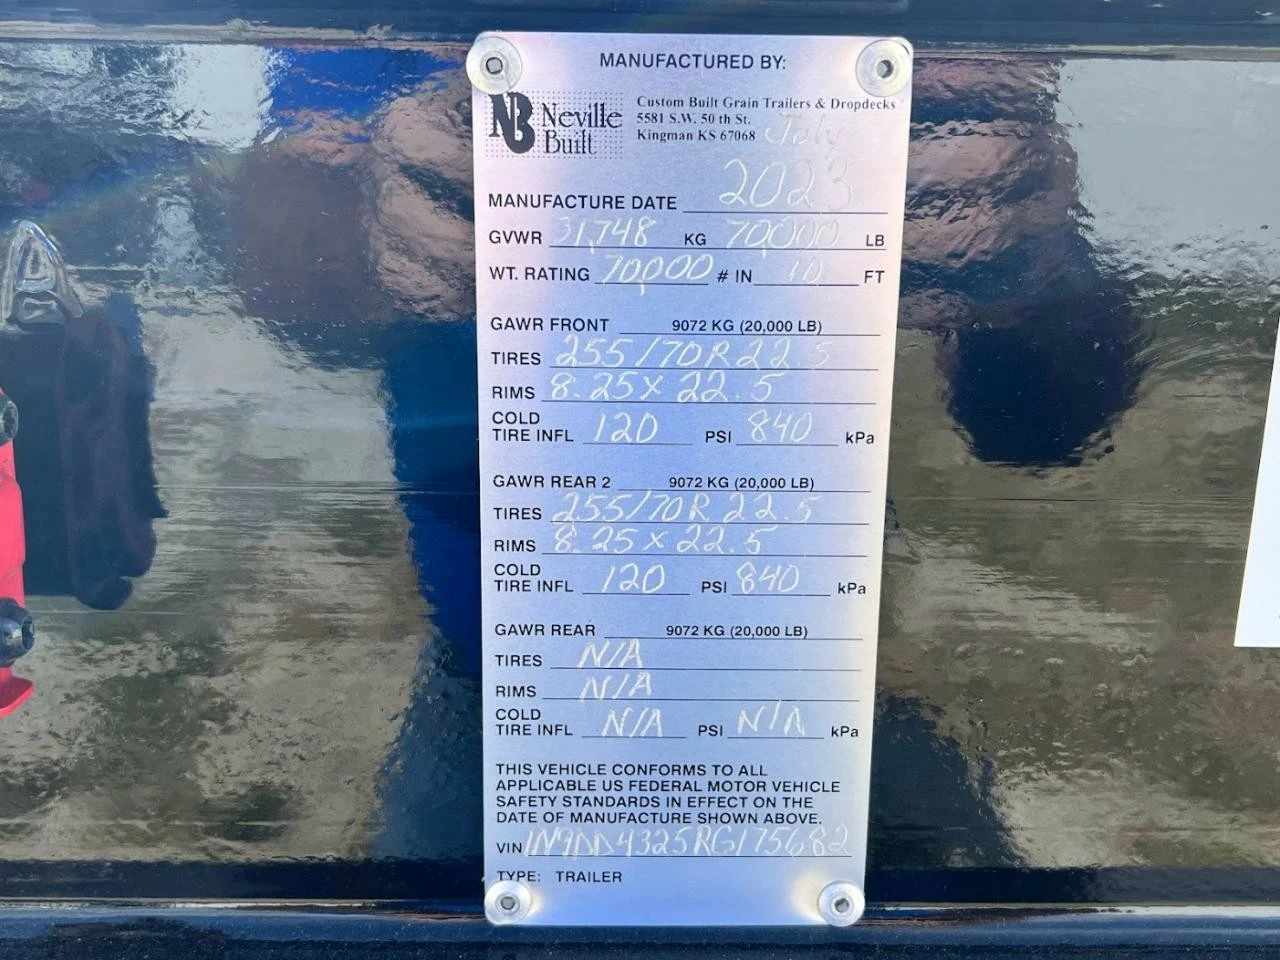 MANUFACTURED BY:
NB Neville Built
Custom Built Grain Trailers & Dropdecks
5581 S.W. 50 th St.
Kingman KS 67068
July
MANUFACTURE DATE 2023
GVWR 31,748 KG 70,000 LB
WT. RATING 70,000 # IN 10 FT
GAWR FRONT 9072 KG (20,000 LB)
TIRES 255/70R 22.5
RIMS 8.25 x 22.5
COLD
TIRE INFL 120 PSI 840 kPa
GAWR REAR 2 9072 KG (20,000 LB)
TIRES 255/70R 22.5
RIMS 8.25 x 22.5
COLD
TIRE INFL 120 PSI 840 kPa
GAWR REAR 9072 KG (20,000 LB)
TIRES N/A
RIMS N/A
COLD
TIRE INFL N/A PSI N/A kPa
THIS VEHICLE CONFORMS TO ALL
APPLICABLE US FEDERAL MOTOR VEHICLE
SAFETY STANDARDS IN EFFECT ON THE
DATE OF MANUFACTURE SHOWN ABOVE.
VIN 1N9DD4325RG175682
TYPE: TRAILER